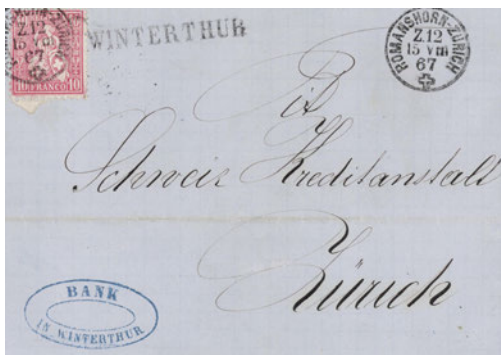 ROMANSHORN-ZÜRICH
Z.12
15 VIII
67
10 FRANCO 10
WINTERTHUR
ROMANSHORN-ZÜRICH
Z.12
15 VIII
67
Schweiz Kreditanstalt
Zürich.
BANK
IN WINTERTHUR